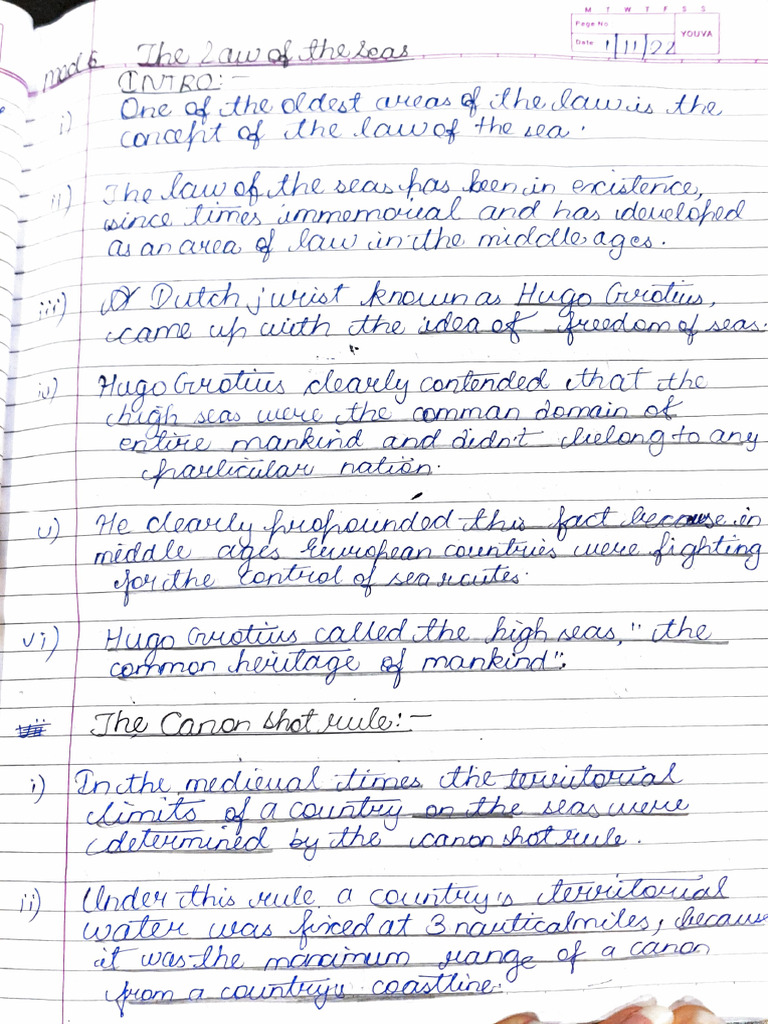 M T W T F S S
Page No
YOUVA
Date 1/11/22
mod 6 The Law of the seas
INTRO:-
i) One of the oldest areas of the law is the
concept of the law of the sea.
ii) The law of the seas has been in existence,
since times immemorial and has developed
as an area of law in the middle ages.
iii) A Dutch jurist known as Hugo Grotius,
came up with the idea of freedom of seas.
iv) Hugo Grotius clearly contended that the
high seas were the comman domain of
entire mankind and didn't belong to any
particular nation.
v) He clearly propounded this fact because in
middle ages European countries were fighting
for the control of sea routes.
vi) Hugo Grotius called the high seas, "the
common heritage of mankind".
The Canon shot rule:-
i) In the medieval times the territorial
limits of a country on the seas were
determined by the canon shot rule.
ii) Under this rule a country's territorial
water was fixed at 3 nautical miles, because
it was the maximum range of a canon
from a country's coastline.